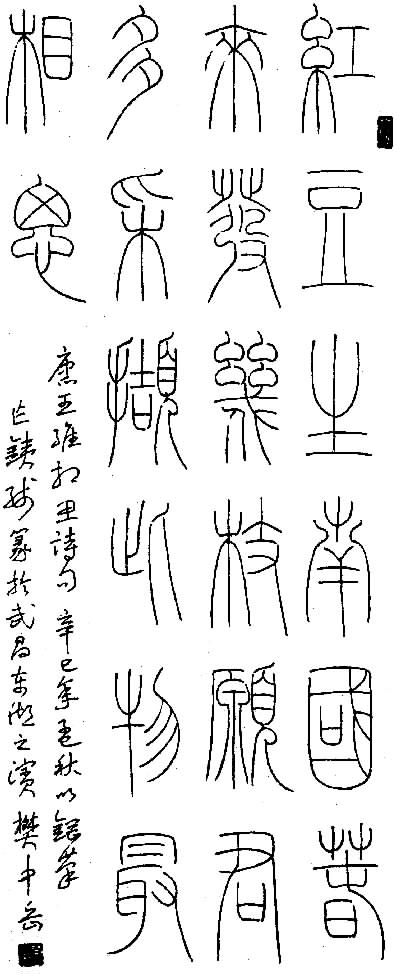 紅豆生南國春
來發幾枝願君
多采擷此物最
相思
唐王維相思詩句 辛巳年孟秋以筆
作鐵线篆於武昌东湖之濱 樊中岳